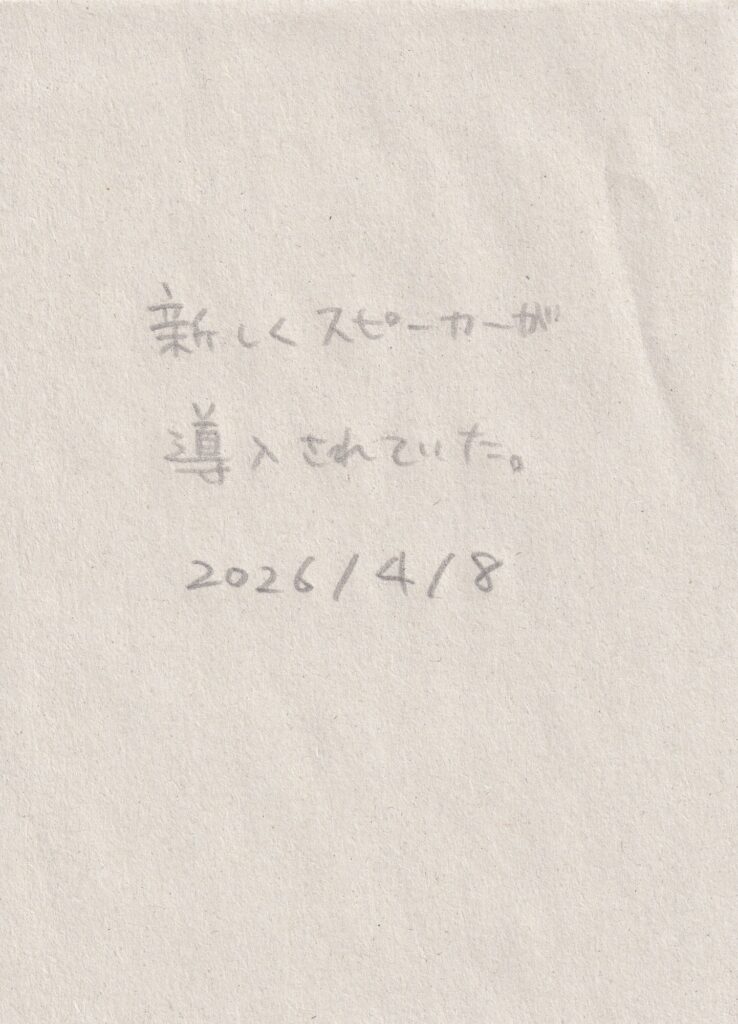 新しくスピーカーが
導入されていた。
2026/4/8